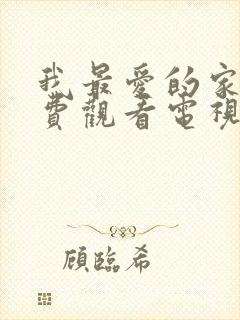 我最愛的家
費觀看電視
顧臨希